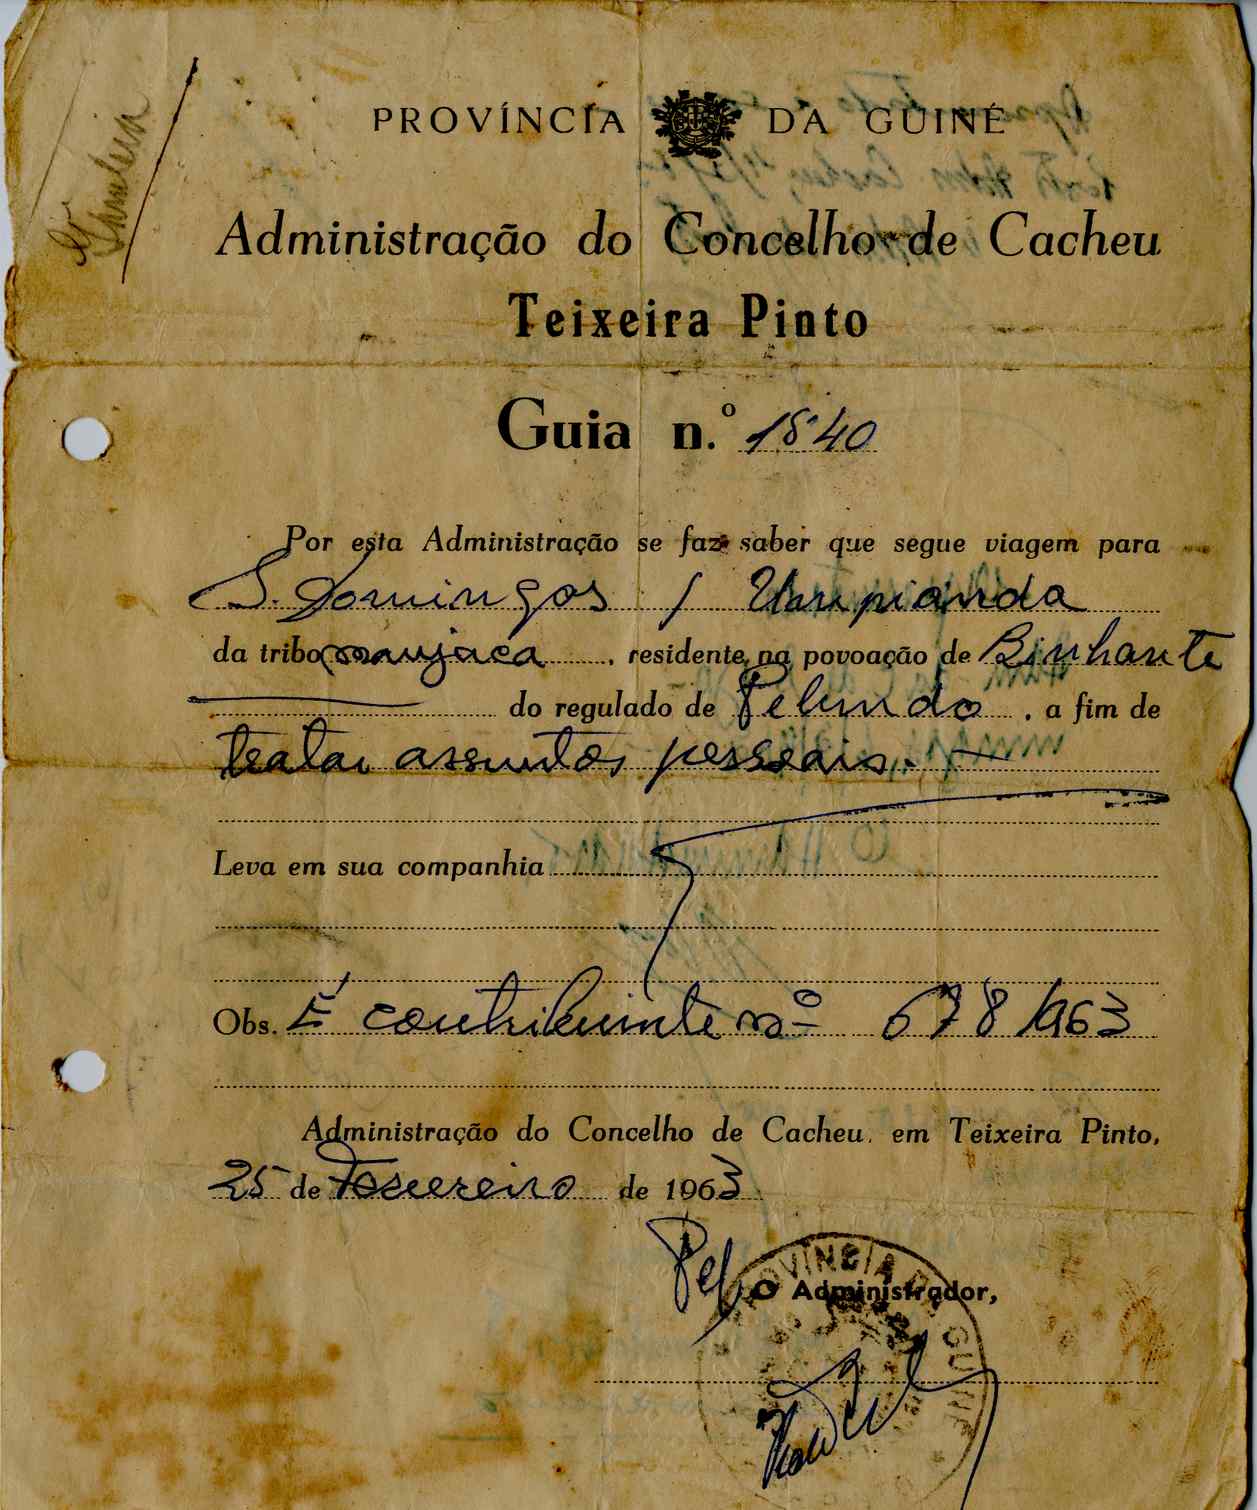 PROVÍNCIA DA GUINÉ
Administração do Concelho de Cacheu
Teixeira Pinto
Guia n.º 1840
Por esta Administração se faz saber que segue viagem para
S. Domingos / Unripianda
da tribo manjaca, residente na povoação de Binhante
do regulado de Pelundo, a fim de
tratar assuntos pessoais. —
Leva em sua companhia
Obs. É contribuinte nº 678/963
Administração do Concelho de Cacheu, em Teixeira Pinto,
25 de Fevereiro de 1963
Pel O Administrador,
PROVÍNCIA DA GUINÉ